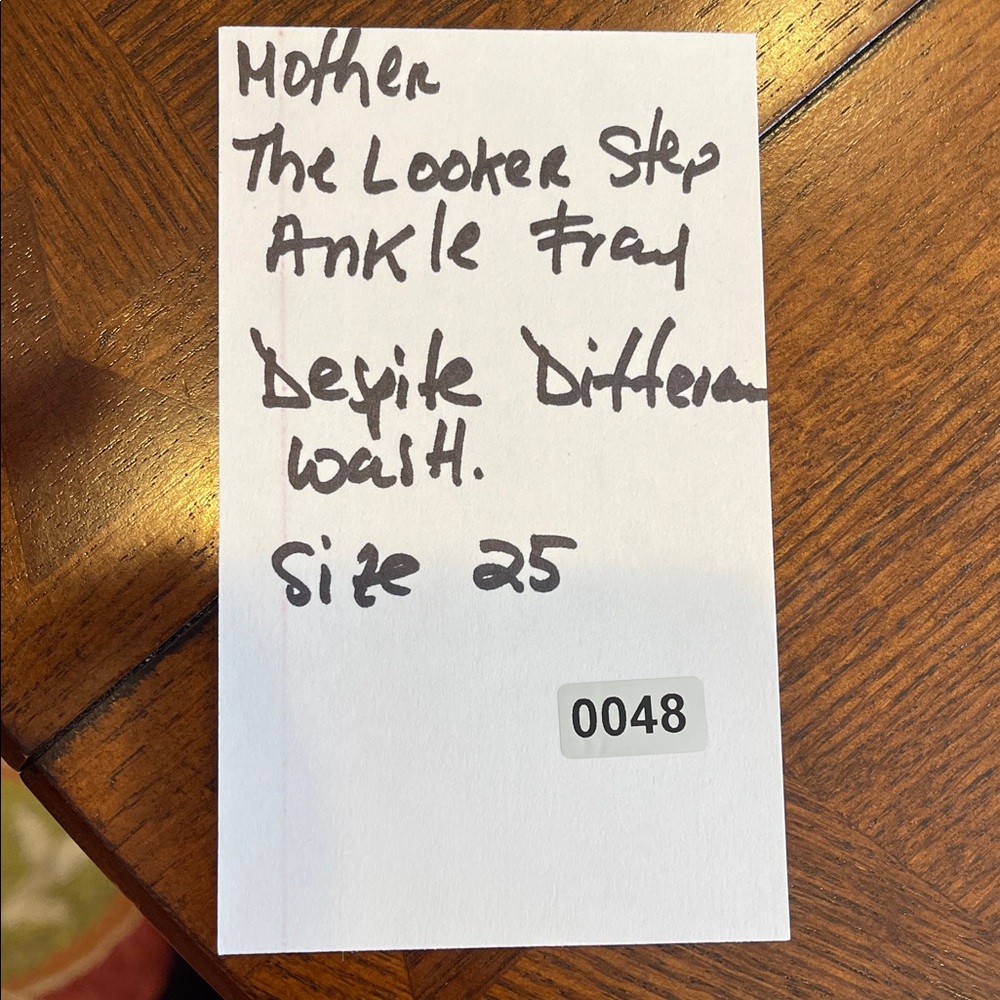 Mother
The Looker Step
Ankle Fray
Despite Differen
Wash.
Size 25
0048